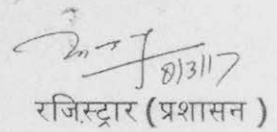 8/3/17
रजिस्ट्रार (प्रशासन)